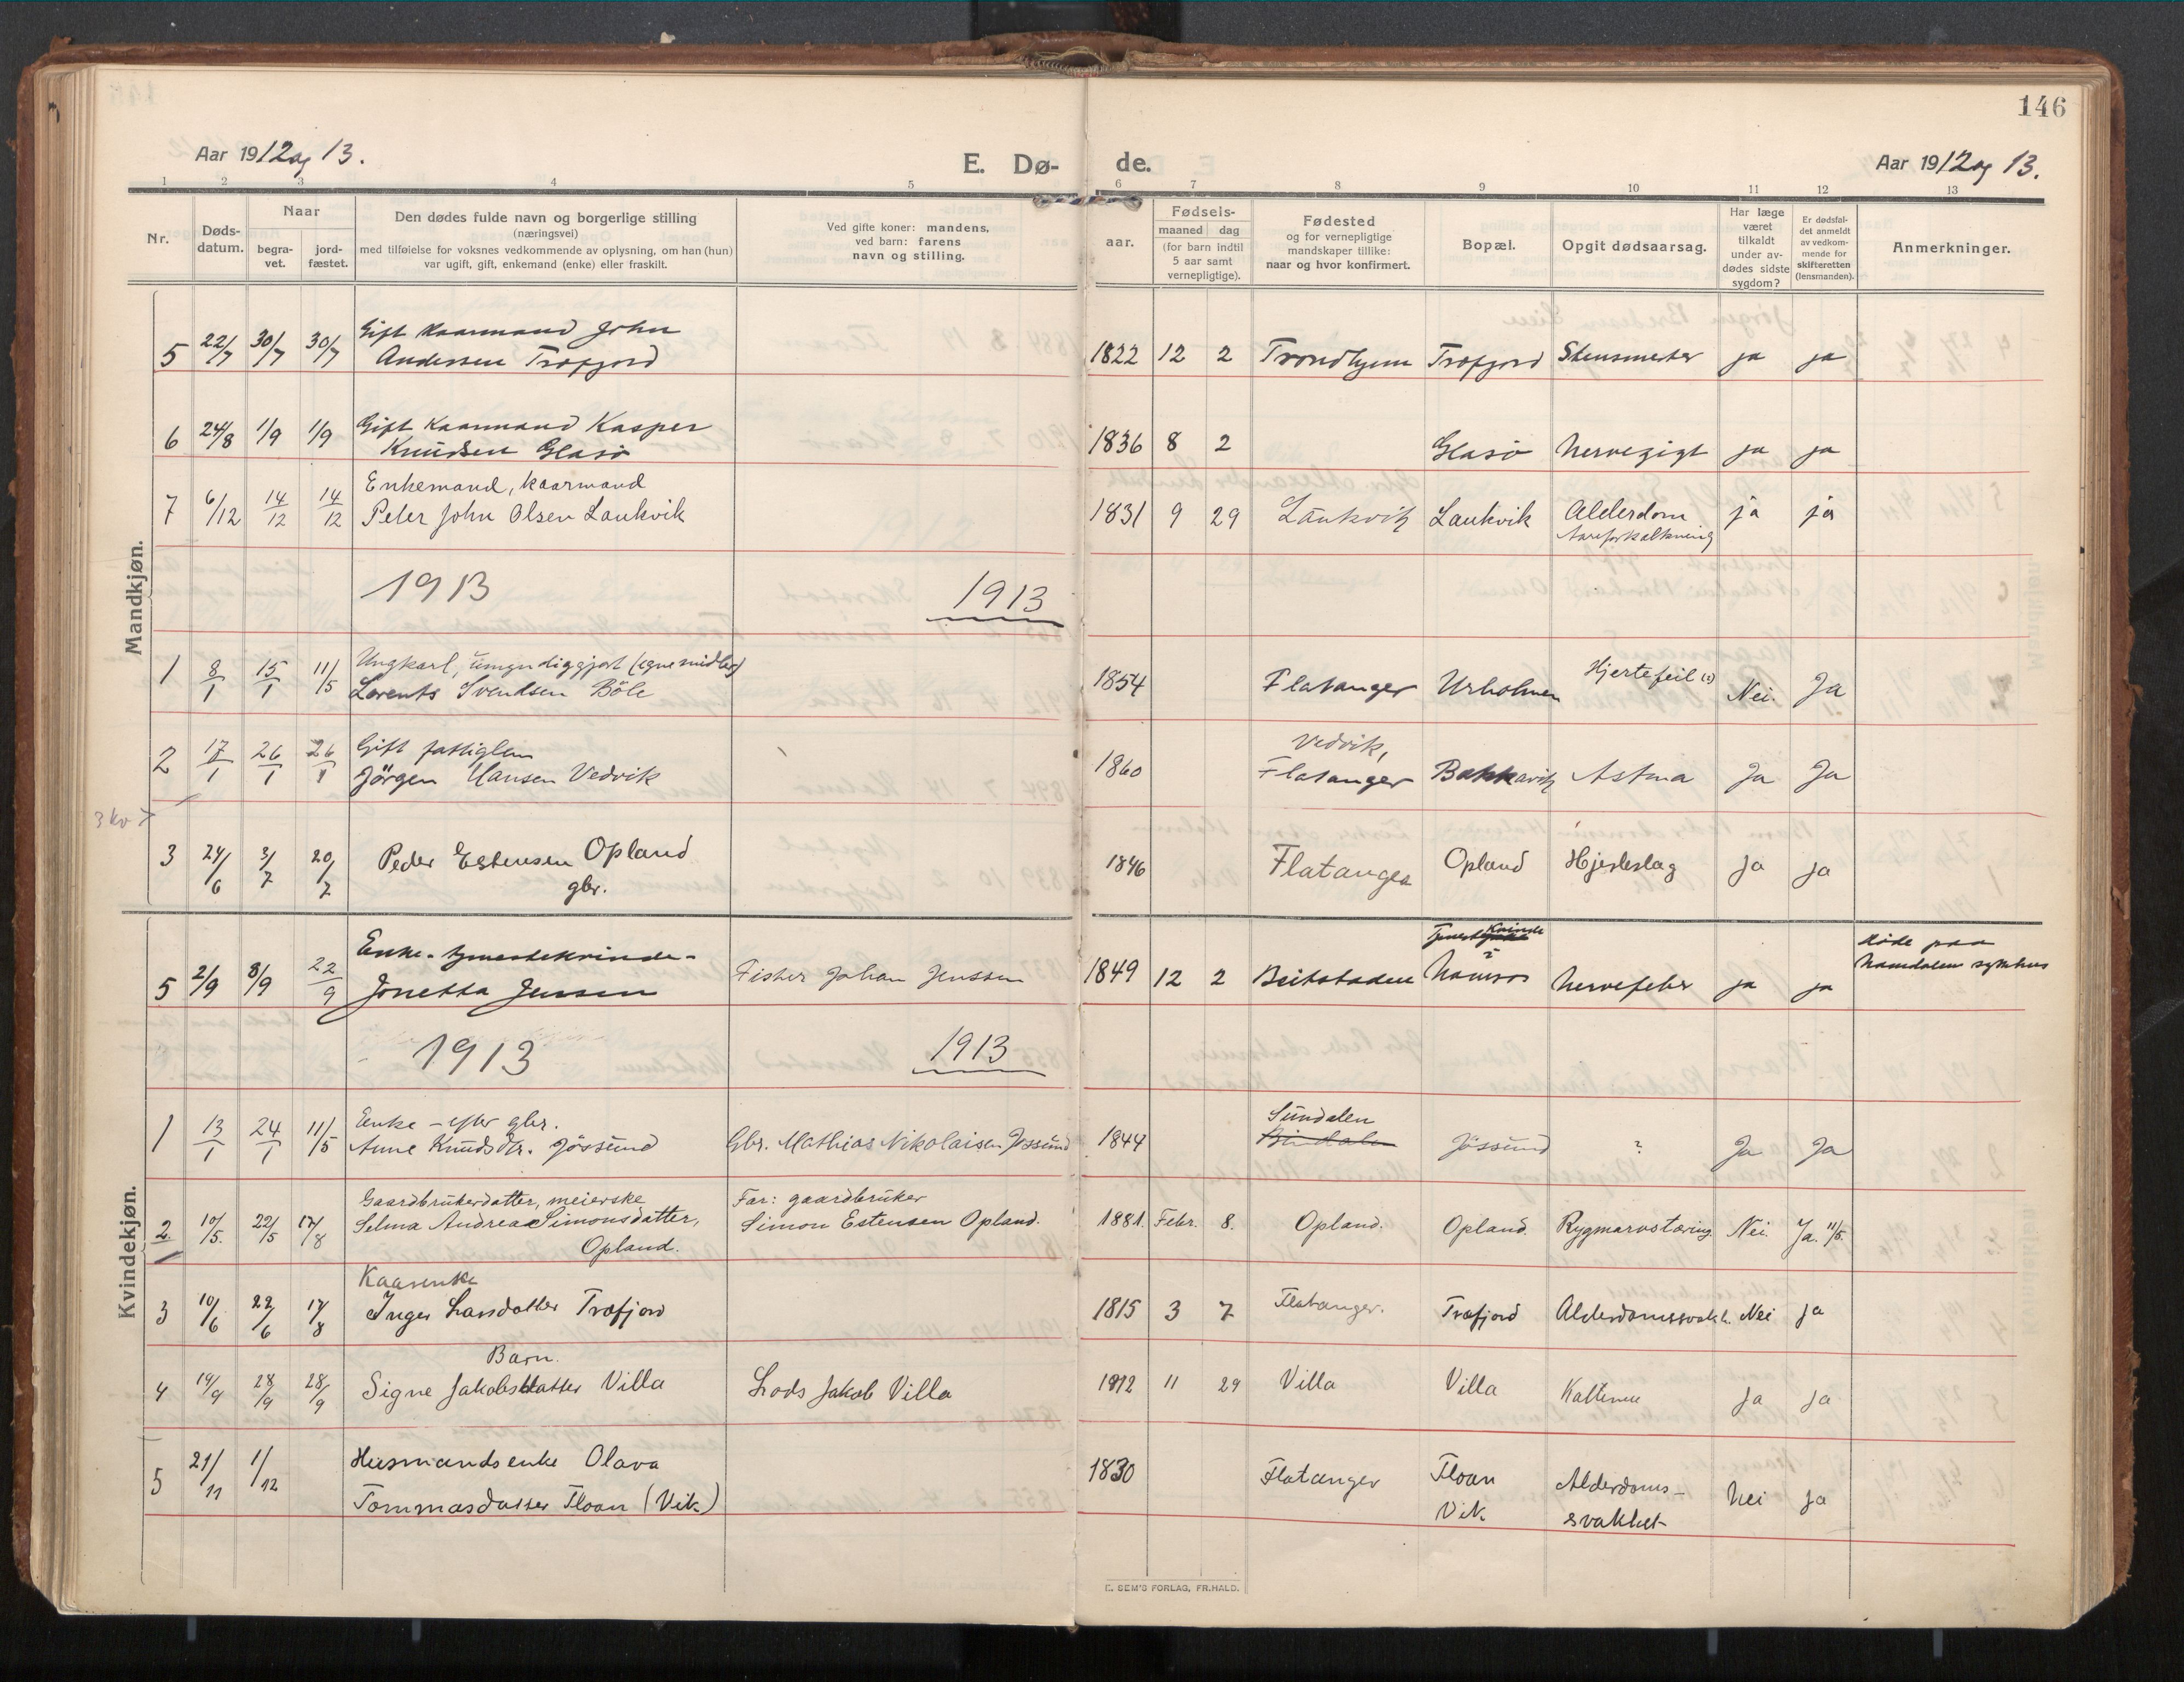 146
Aar 1912 og 13.
E. Dø-
de.
Aar 1912 og 13.
1 2 3 4 5 6 7 8 9 10 11 12 13
Nr.
Døds-
datum.
Naar
begra-
vet.
jord-
fæstet.
Den dødes fulde navn og borgerlige stilling
(næringsvei)
med tilføielse for voksnes vedkommende av oplysning, om han (hun)
var ugift, gift, enkemand (enke) eller fraskilt.
Ved gifte koner: mandens,
ved barn: farens
navn og stilling.
aar.
Fødsels-
maaned dag
(for barn indtil
5 aar samt
vernepligtige).
Fødested
og for vernepligtige
mandskaper tillike:
naar og hvor konfirmert.
Bopæl.
Opgit dødsaarsag.
Har læge
været
tilkaldt
under av-
dødes sidste
sygdom?
Er dødsfal-
det anmeldt
av vedkom-
mende for
skifteretten
(lensmanden).
Anmerkninger.
Mandkjøn.
Gift kaarmand John
5 22/7 30/7 30/7 Andersen Træfjord 1822 12 2 Trondhjem Træfjord ja ja
Gift kaarmand Kasper
6 24/8 1/9 1/9 Knudsen Glasø 1836 8 2 Glasø Nervegigt ja ja
Enkemand, kaarmand
7 6/12 14/12 14/12 Peter John Olsen Laukvik 1831 9 29 Laukvik Laukvik Alderdom ja ja
Aareforkalkning
1913 1913
Ungkarl, umyndiggjort (egne midler)
1 8/1 15/1 11/5 Lorents Svendsen Böle 1854 Flatanger Urholmen Hjertefeil (?) Nei. Ja
Gift fattiglem Vedvik,
2 17/1 26/1 26/1 Jörgen Hansen Vedvik 1860 Flatanger Astma Ja Ja
3 kv
3 24/6 3/7 20/7 Peder Estensen Opland 1846 Flatanger Opland Hjerteslag Ja ja
gbr.
Kvindekjøn.
Enke - tjenestekvinde - kvinde i døde paa
5 2/9 8/9 22/9 Jonetta Jensen Fisker Johan Jenssen 1849 12 2 Beitstaden Namsos Nervefeber ja ja Namdalens sykehus
1913 1913
Enke - efter gbr. Sundalen
1 13/1 24/1 11/5 Anne Knudsdtr. Jössund Gbr. Mathias Nikolaisen Jössund 1844 Bindalen Jössund ? Ja Ja
Gaardbrukerdatter, meierske Far: gaardbruker
2. 10/5. 22/5 17/8 Selma Andrea Simonsdatter, Simon Estensen Opland. 1881. Febr. 8. Opland. Opland. Rygmarvstæring. Nei. Ja. 11/5.
Opland.
Kaarenke
3 10/6 22/6 17/8 Inger Larsdatter Træfjord 1815 3 7 Flatanger. Træfjord Alderdomssvakh. Nei ja
Barn.
4 19/9 28/9 28/9 Signe Jakobsdatter Villa Lods Jakob Villa 1912 11 29 Villa Villa Ja ja
Husmandsenke Olava
5 21/11 1/12 Tommasdatter Floan (Vik) 1830 Flatanger Floan Alderdoms- Nei ja
Vik svakhet
E. SEM'S FORLAG, FR.HALD.